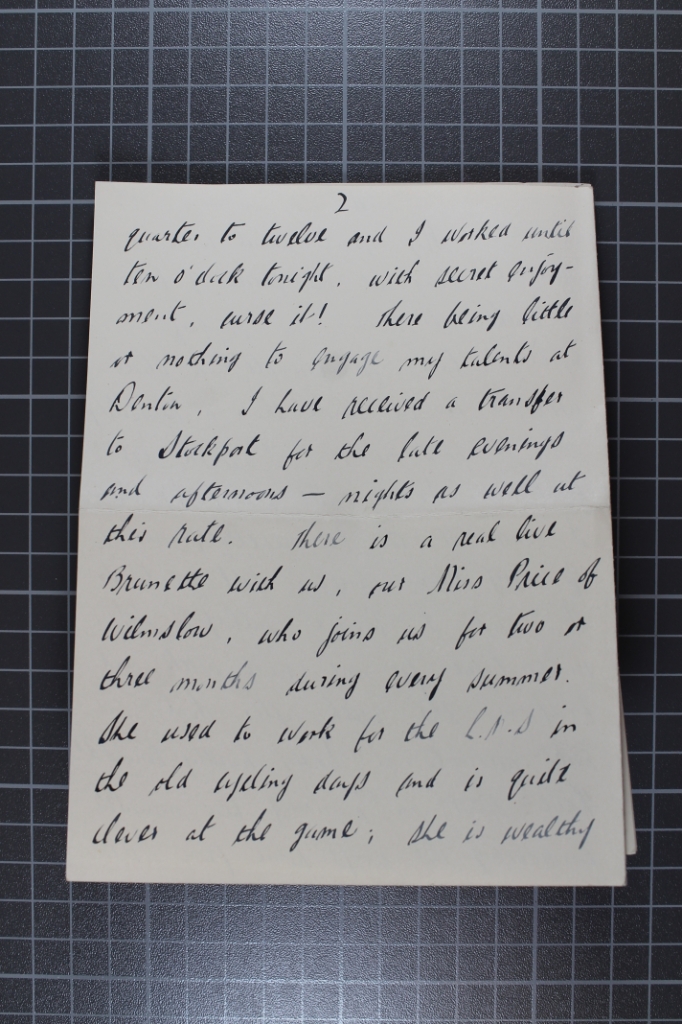 2
quarter to twelve and I worked until
ten o'clock tonight, with secret enjoy-
ment, curse it! There being little
or nothing to engage my talents at
Denton, I have received a transfer
to Stockport for the late evenings
and afternoons — nights as well at
this rate. There is a real live
Brunette with us, our Miss Price of
Wilmslow, who joins us for two or
three months during every summer.
She used to work for the L.N.S in
the old cycling days and is quite
clever at the game; she is wealthy